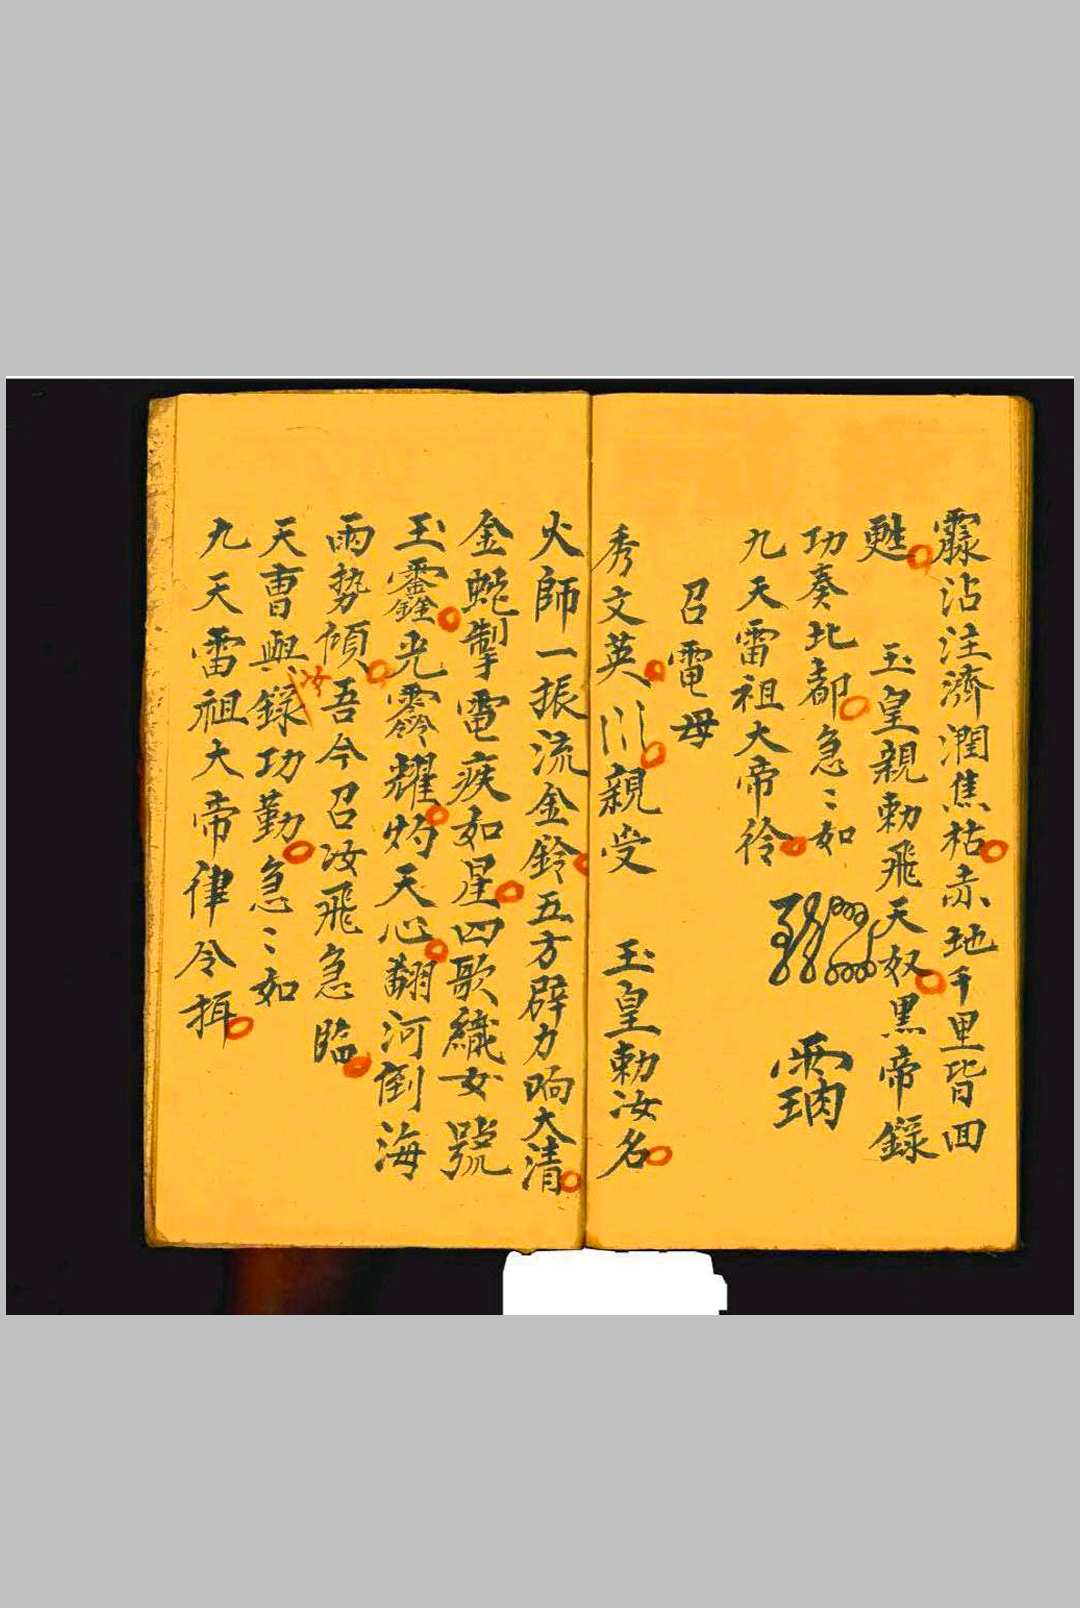 霡沾注濟潤焦枯赤地千里皆回
甦 玉皇親勅飛天奴黑帝錄
功奏北都急〻如
九天雷祖大帝
召電母
秀文英 親受 玉皇勅汝名
火師一振流金鈴五方霹力响大清
金蛇掣電疾如星四歌織女號
玉 光 耀灼天心翻河倒海
雨勢傾吾今召汝飛急臨
天曹與汝錄功勤急〻如
九天雷祖大帝律令